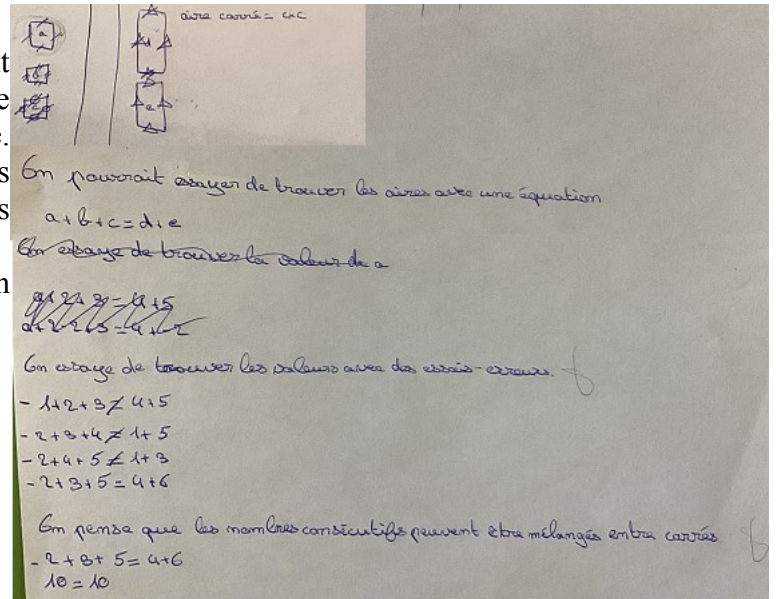 aire carré = c×c
a
b
d
e
On pourrait essayer de trouver les aires avec une équation
a+b+c=d+e
On essaye de trouver la valeur de a
On essaye de trouver les valeurs avec des essais-erreurs.
- 1+2+3≠4+5
- 2+3+4≠1+5
- 2+4+5≠1+3
- 2+3+5=4+6
On pense que les nombres consécutifs peuvent être mélangés entre carrés
- 2+3+5=4+6
10=10